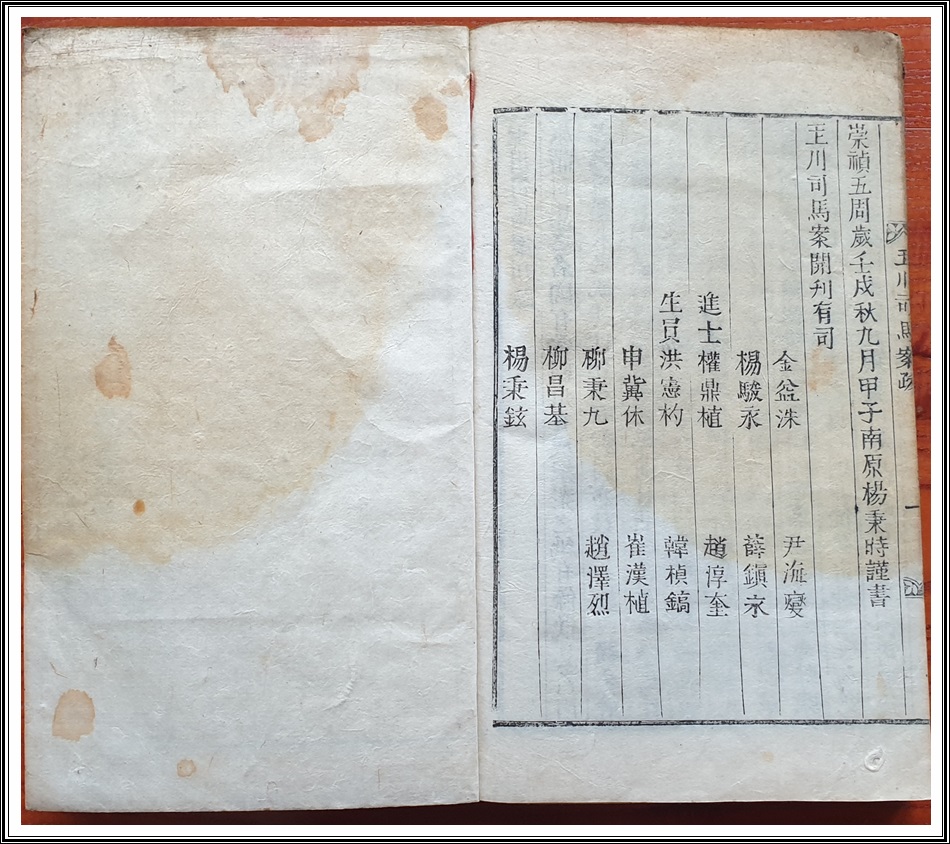 玉川司馬案跋 一
崇禎五周歲壬戌秋九月甲子南原楊秉時謹書
玉川司馬案開刊有司
金益洙 尹海燮
楊駿永 薛鎭永
進士權鼎植 趙淳奎
生員洪憲杓 韓楨鎬
申冀休 崔漢植
柳秉九 趙澤烈
柳昌基
楊秉鉉